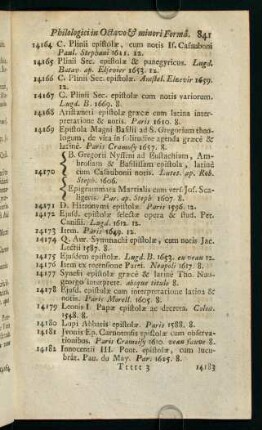 Philologici in Octavo & minori Formâ. 841
14164 C. Plinii epistolæ, cum notis Is. Casauboni
Paul. Stephani 1611. 12.
14165 Plinii Sec. epistolæ & panegyricus. Lugd.
Batav. ap. Elzevier 1653. 12.
14166 C. Plinii Sec. epistolæ. Amstel. Elzevir 1659.
12.
14167 C. Plinii Sec. epistolæ cum notis variorum.
Lugd. B. 1669. 8.
14168 Aristæneti epistolæ græcæ cum latina inter-
pretatione & notis. Paris 1610. 8.
14169 Epistola Magni Basilii ad S. Gregorium theo-
logum, de vita in solitudine agenda græcè &
latinè. Paris Cramoisy 1657. 8.
B. Gregorii Nysseni ad Eustathiam, Am-
brosiam & Basilissam epistola, latinè
14170 cum Casauboni notis. Lutet. ap. Rob.
Steph. 1606.
Epigrammata Martialis cum vers. Jos. Sca-
ligeri. Par. ap. Steph. 1607. 8.
14171 D. Hieronymi epistolæ. Paris 1596. 12.
14172 Ejusd. epistolæ selectæ opera & stud. Pet.
Canisii. Lugd. 1612. 12.
14173 Item. Paris 1649. 12.
14174 Q. Aur. Symmachi epistolæ, cum notis Jac.
Lectii 1587. 8.
14175 Ejusdem epistolæ. Lugd. B. 1653. en veau 12.
14176 Item ex recensione Parei. Neapoli 1617. 8.
14177 Synesii epistolæ græcè & latinè Tho. Nao-
georgo interprete. absque titulo 8.
14178 Ejusd. epistolæ cum interpretatione latina &
notis. Paris Morell. 1605. 8.
14179 Leonis I. Papæ epistolæ ac decreta. Colon.
1548. 8.
14180 Lupi Abbatis epistolæ. Paris 1588. 8.
14181 Ivonis Ep. Carnotensis epistolæ cum observa-
tionibus. Paris Cramoisy 1610. veau fauve 8.
14182 Innocentii III. Pont. epistolæ, cum lucu-
brat. Pau. du May. Par. 1625. 8.
Ttttt 3 14183